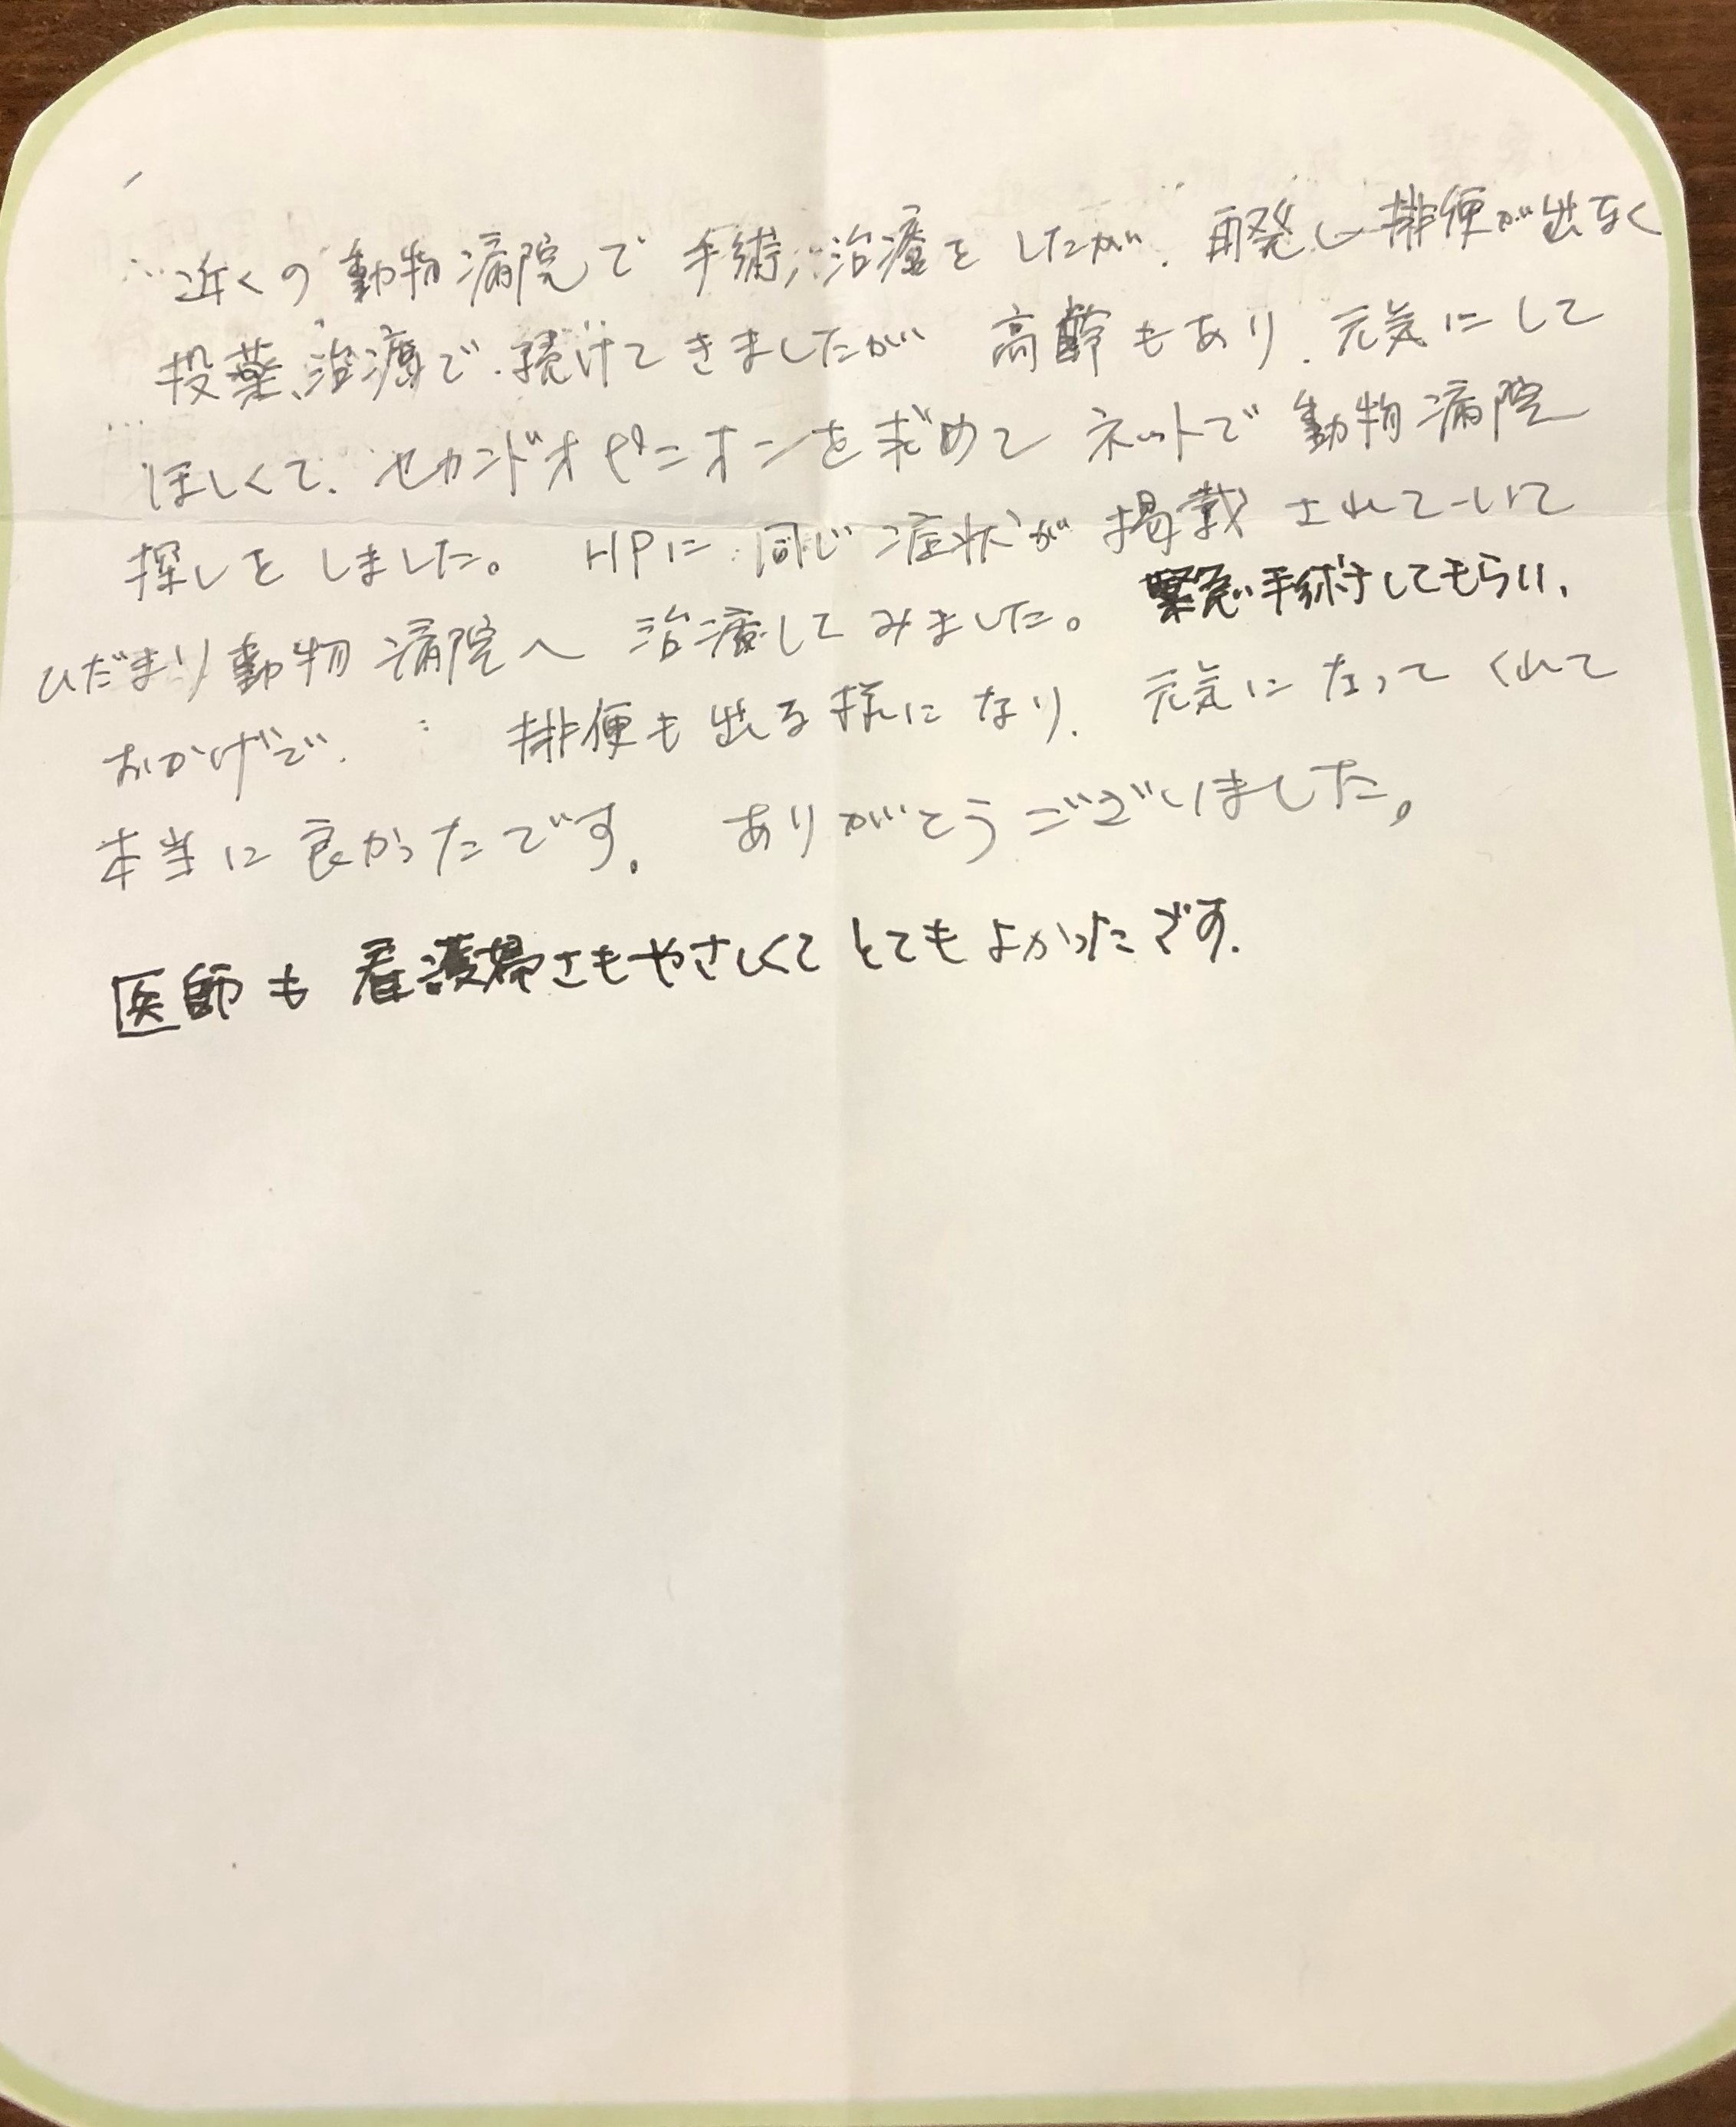 近くの動物病院で手術、治療をしたが、再発し排便が出なく
投薬、治療で続けてきましたが 高齢もあり、元気にして
ほしくて、セカンドオピニオンを求めて ネットで 動物病院
探しをしました。 HPに同じ症状が掲載されていて
ひだまり動物病院へ 治療してみました。 緊急手術してもらい、
おかげで、 排便も出る様になり、元気になってくれて
本当に良かったです。 ありがとうございました。
医師も看護婦さもやさしくてとてもよかったです。